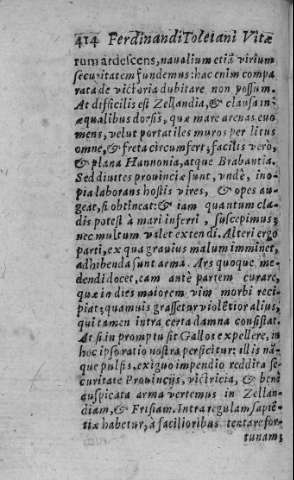 414 Ferdinandi Toletani Vitæ
rum ardescens, naualium etiã virium
securitatem fundemus: hac enim compa
rata de victoria dubitare non possum.
At difficilis est Zellandia, & clausa in-
æqualibus dorsis, quæ mare arenas euo
mens, velut portatiles muros per litus
omne, & freta circumfert; facilis verò,
& plana Hannonia, atque Brabantia.
Sed diuites prouinciæ sunt, vndè, ino-
pia laborans hostis vires, & opes au-
geat, si obtineat: & iam quantum cla-
dis potest à mari inferri, suscepimus;
nec multum valet extendi. Alteri ergo
parti, ex qua grauius malum imminet,
adhibenda sunt arma. Ars quoque me-
dendi docet, eam antè partem curare,
quæ in dies maiorem vim morbi reci-
piat; quamuis grassetur violẽtior alius,
qui tamen intra certa damna consistat.
At si in promptu sit Gallos expellere, in
hoc ipso ratio nostra perficitur: illis nã-
que pulsis, exiguo impendio reddita se-
curitate Prouincijs, victricia, & benè
auspicata arma vertemus in Zellan-
diam, & Frisiam. Intra regulam sapiẽ-
tiæ habetur, à facilioribus tentare for-
tunam;